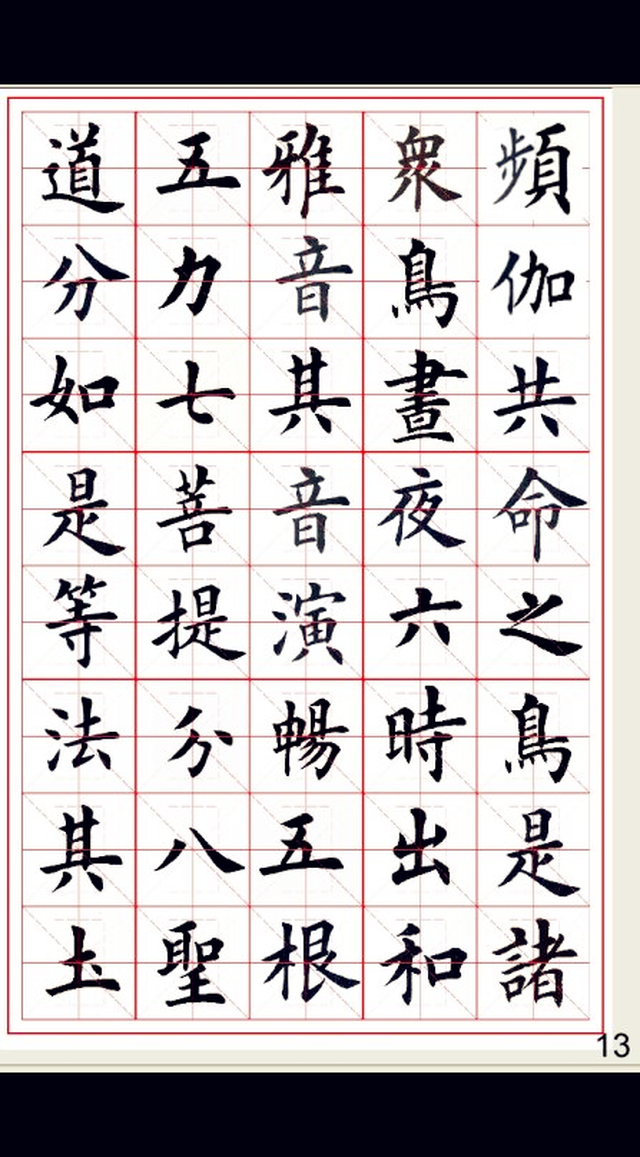 頻伽共命之鳥是諸
衆鳥晝夜六時出和
雅音其音演暢五根
五力七菩提分八聖
道分如是等法其土
13